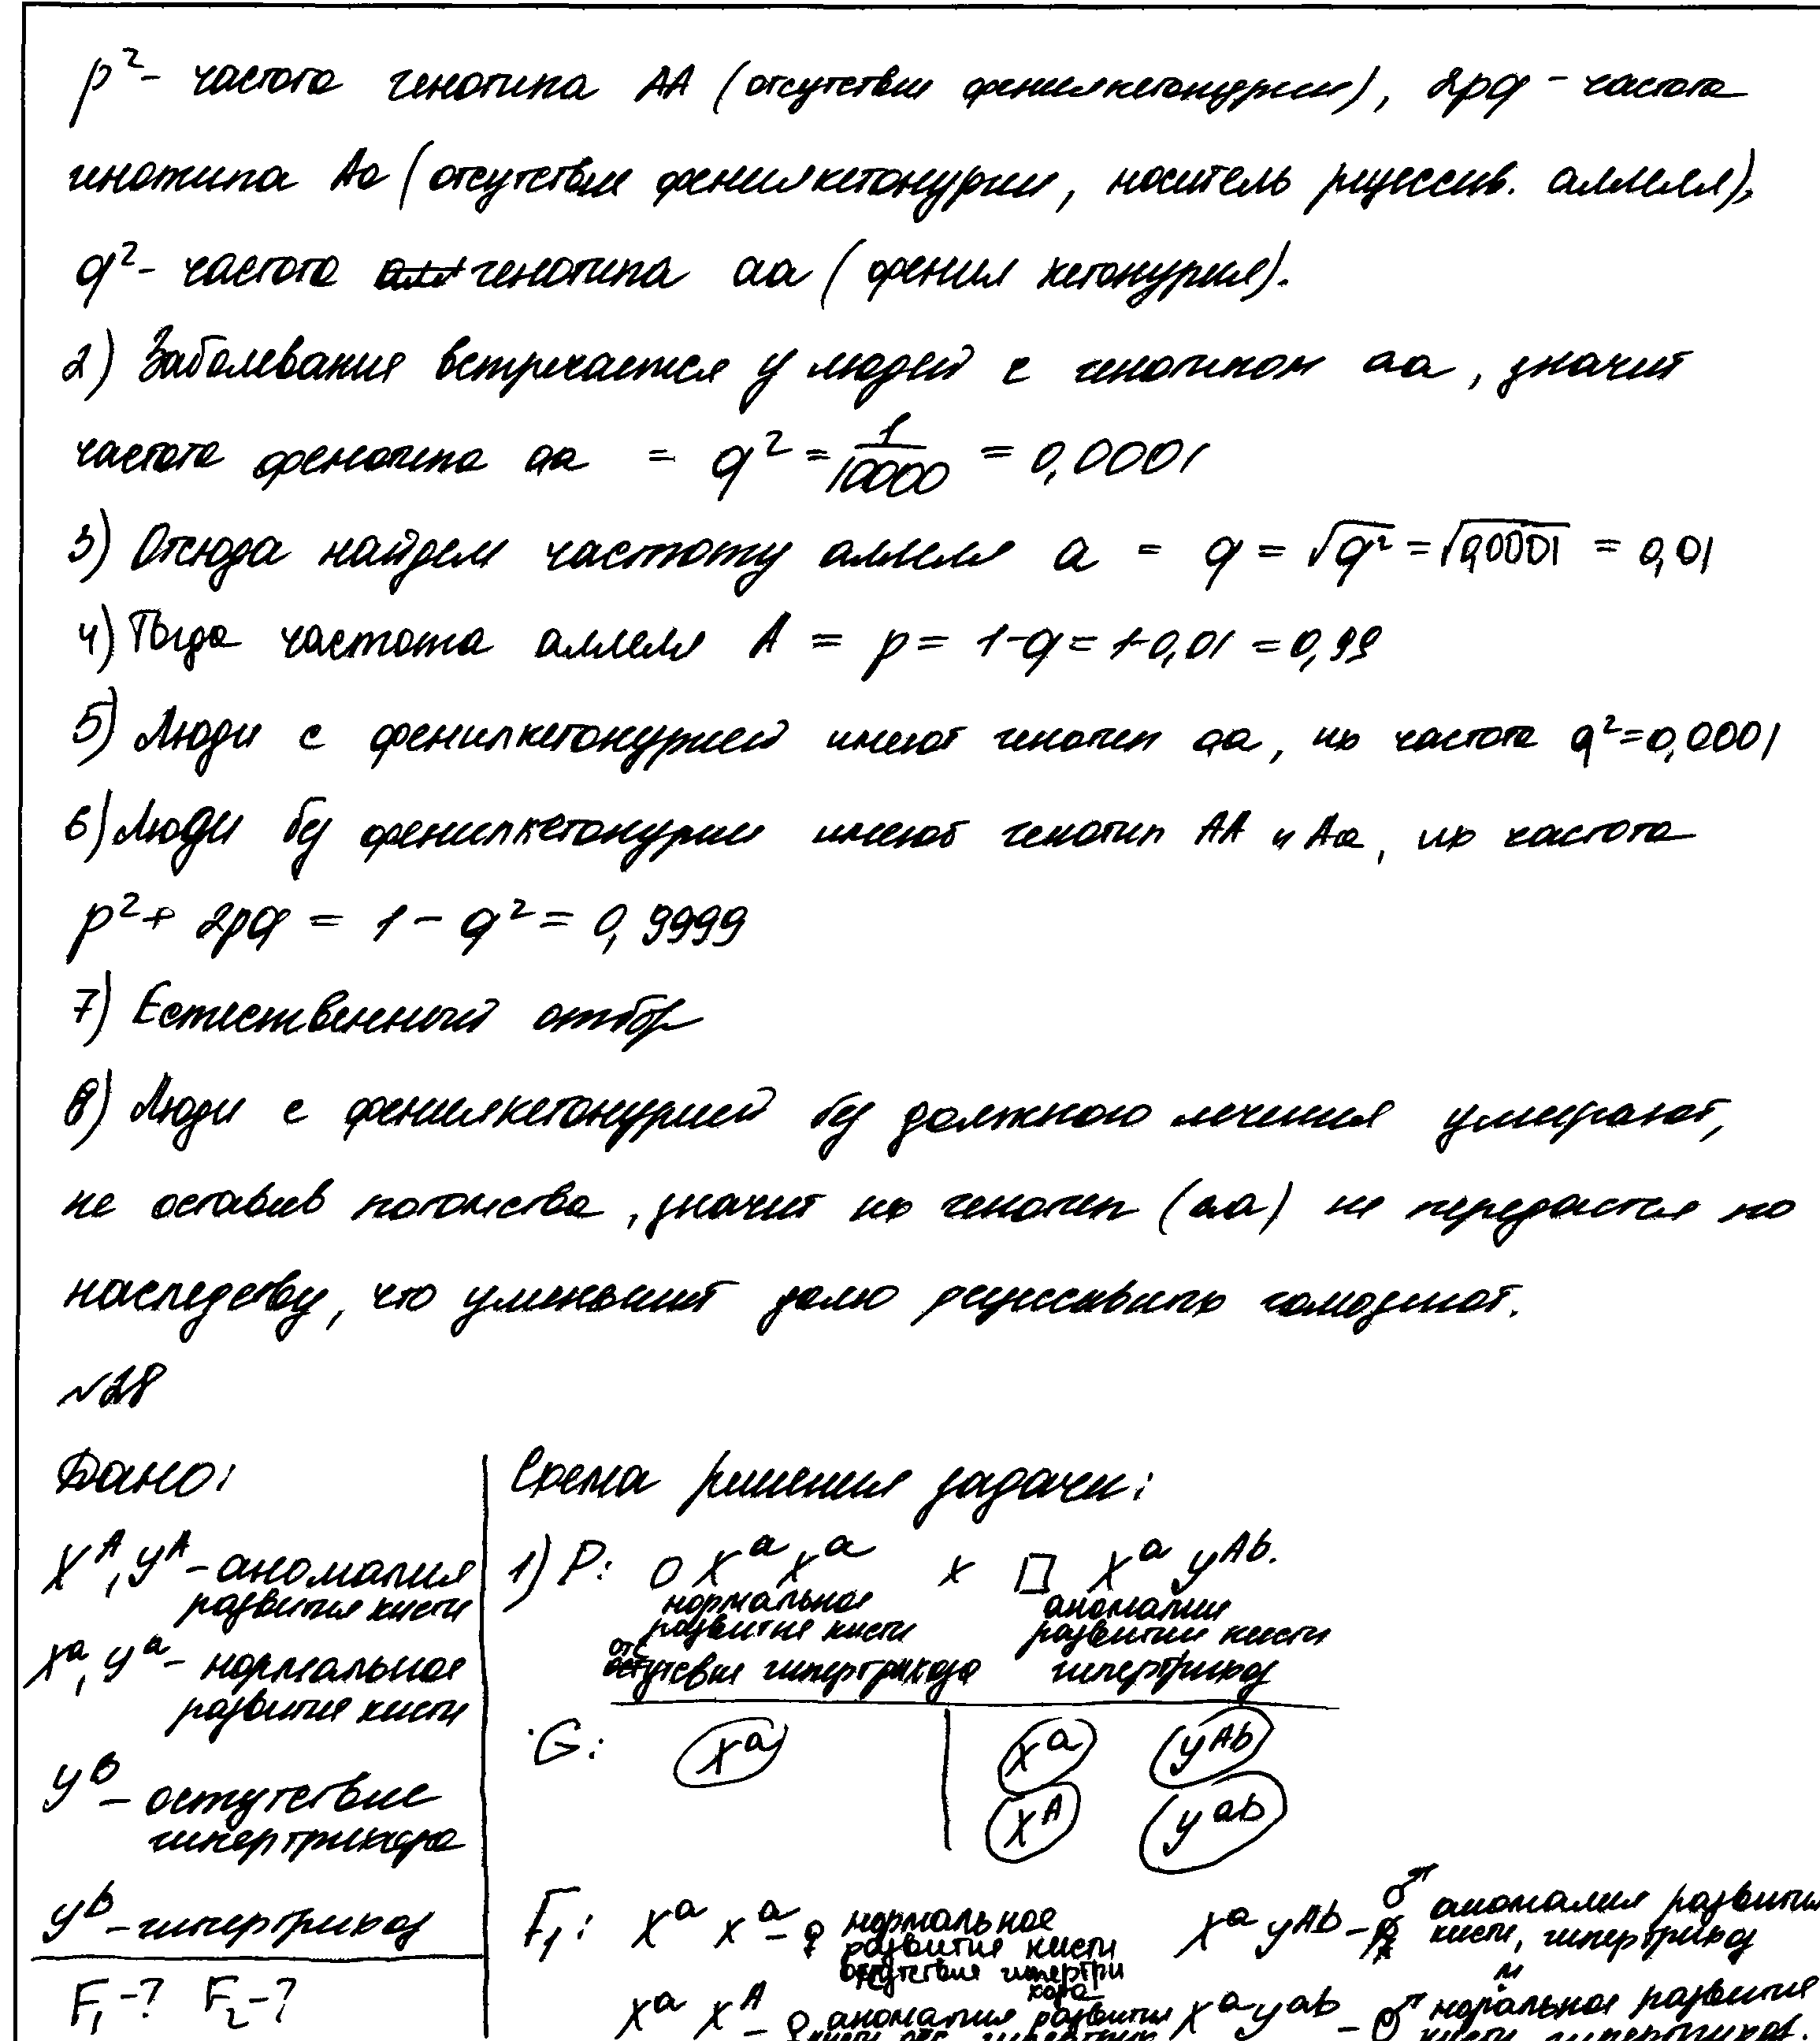 p² - частота генотипа AA (отсутствие фенилкетонурии), 2pq - частота
генотипа Aa (отсутствие фенилкетонурии, носитель рецессив. аллеля),
q² - частота генотипа aa (фенил кетонурия).
2) Заболевания встречается у людей с генотипом aa, значит
частота фенотипа aa = q² = 1/10000 = 0,0001
3) Отсюда найдем частоту аллеля a = q = √q² = √0,0001 = 0,01
4) Тогда частота аллеля A = p = 1-q = 1-0,01 = 0,99
5) Люди с фенилкетонурией имеют генотип aa, их частота q²=0,0001
6) Люди без фенилкетонурии имеют генотип AA и Aa, их частота
p² + 2pq = 1 - q² = 0,9999
7) Естественный отбор
8) Люди с фенилкетонурией без должного лечения умирают,
не оставив потомства, значит их генотип (aa) не передастся по
наследству, что уменьшит долю рецессивных гомозигот.
№28
Дано:
X^A, Y^A - аномалия
развития кисти
X^a, Y^a - нормальное
развитие кисти
Y^B - остутствие
гипертрихоза
Y^b - гипертрихоз
F₁ -? F₂ -?
Схема решения задачи:
1) P: ○ X^a X^a × □ X^a Y^Ab.
нормальное развитие кисти отсутствие гипертрихоза
аномалии развитии кисти гипертрихоз
G: X^a | X^a Y^Ab
X^A Y^ab
F₁: X^a X^a - ♀ нормальное развитие кисти отсутствие гипертрихоза X^a Y^Ab - ♂ аномалия развития кисти, гипертрихоз
X^a X^A - ♀ аномалия развития кисти отс. X^a Y^ab - ♂ нормальное развитие кисти, гипертрихоз.